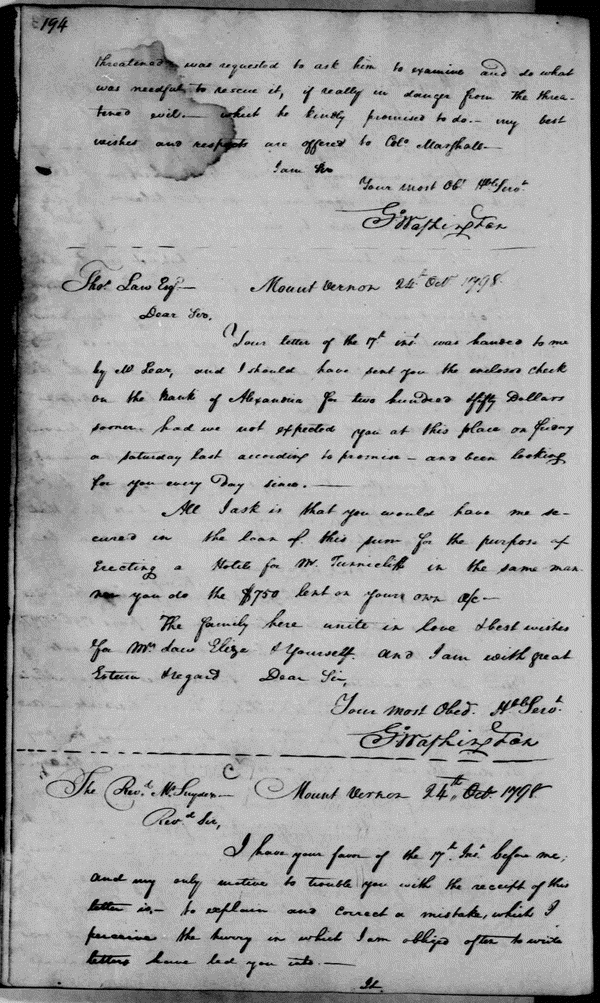 194
threatened was requested to ask him to examine and do what
was needful to rescue it, if really in danger from the threa-
tened evil. — which he kindly promised to do. — my best
wishes and respects are offered to Colo. Marshall —
I am Sir
Your most Obt. Hble Servt.
Go: Washington
Thos. Law Esqr. — Mount Vernon 24th. Octr. 1798.
Dear Sir,
Your letter of the 17th. inst. was handed to me
by Mr Lear, and I should have sent you the enclosed check
on the Bank of Alexandria for two hundred & fifty Dollars
sooner had we not expected you at this place on friday
or saturday last according to promise — and been looking
for you every Day since. —
All I ask is that you would have me se-
cured in the loan of this sum for the purpose of
Erecting a Hotele for Mr. Tunnicliff in the same man-
ner you do the $750 lent on yours own a/c —
The family here unite in love & best wishes
for Mrs. Law Eliza & Yourself. and I am with great
Esteem & regard Dear Sir,
Your most Obed. Hble Servt.
Go: Washington
The Revd. Mr. Snyder — Mount Vernon 24th. Oct. 1798
Revd. Sir,
I have your favor of the 17th. Inst. before me;
and my only motive to trouble you with the receipt of this
letter is, — to explain and correct a mistake, which I
perceive the hurry in which I am obliged often to write
letters have led you into. —
It.